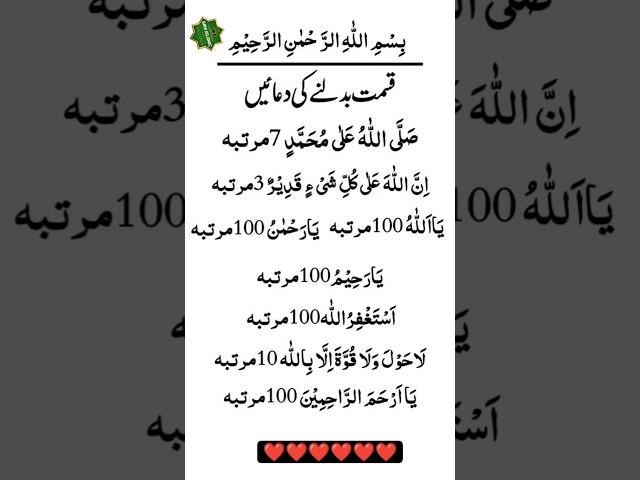 بِسْمِ اللّٰهِ الرَّحْمٰنِ الرَّحِيْمِ
قسمت بدلنے کی دعائیں
صَلَّی اللّٰهُ عَلٰی مُحَمَّدٍ 7مرتبه
اِنَّ اللّٰهَ عَلٰی کُلِّ شَیْءٍ قَدِیْرٌ 3مرتبه
یَااَللّٰهُ 100مرتبه یَارَحْمٰنُ 100مرتبه
یَارَحِیْمُ 100مرتبه
اَسْتَغْفِرُاللّٰه 100مرتبه
لَاحَوْلَ وَلَا قُوَّةَ اِلَّا بِاللّٰه 10مرتبه
یَا اَرْحَمَ الرَّاحِمِیْنَ 100مرتبه